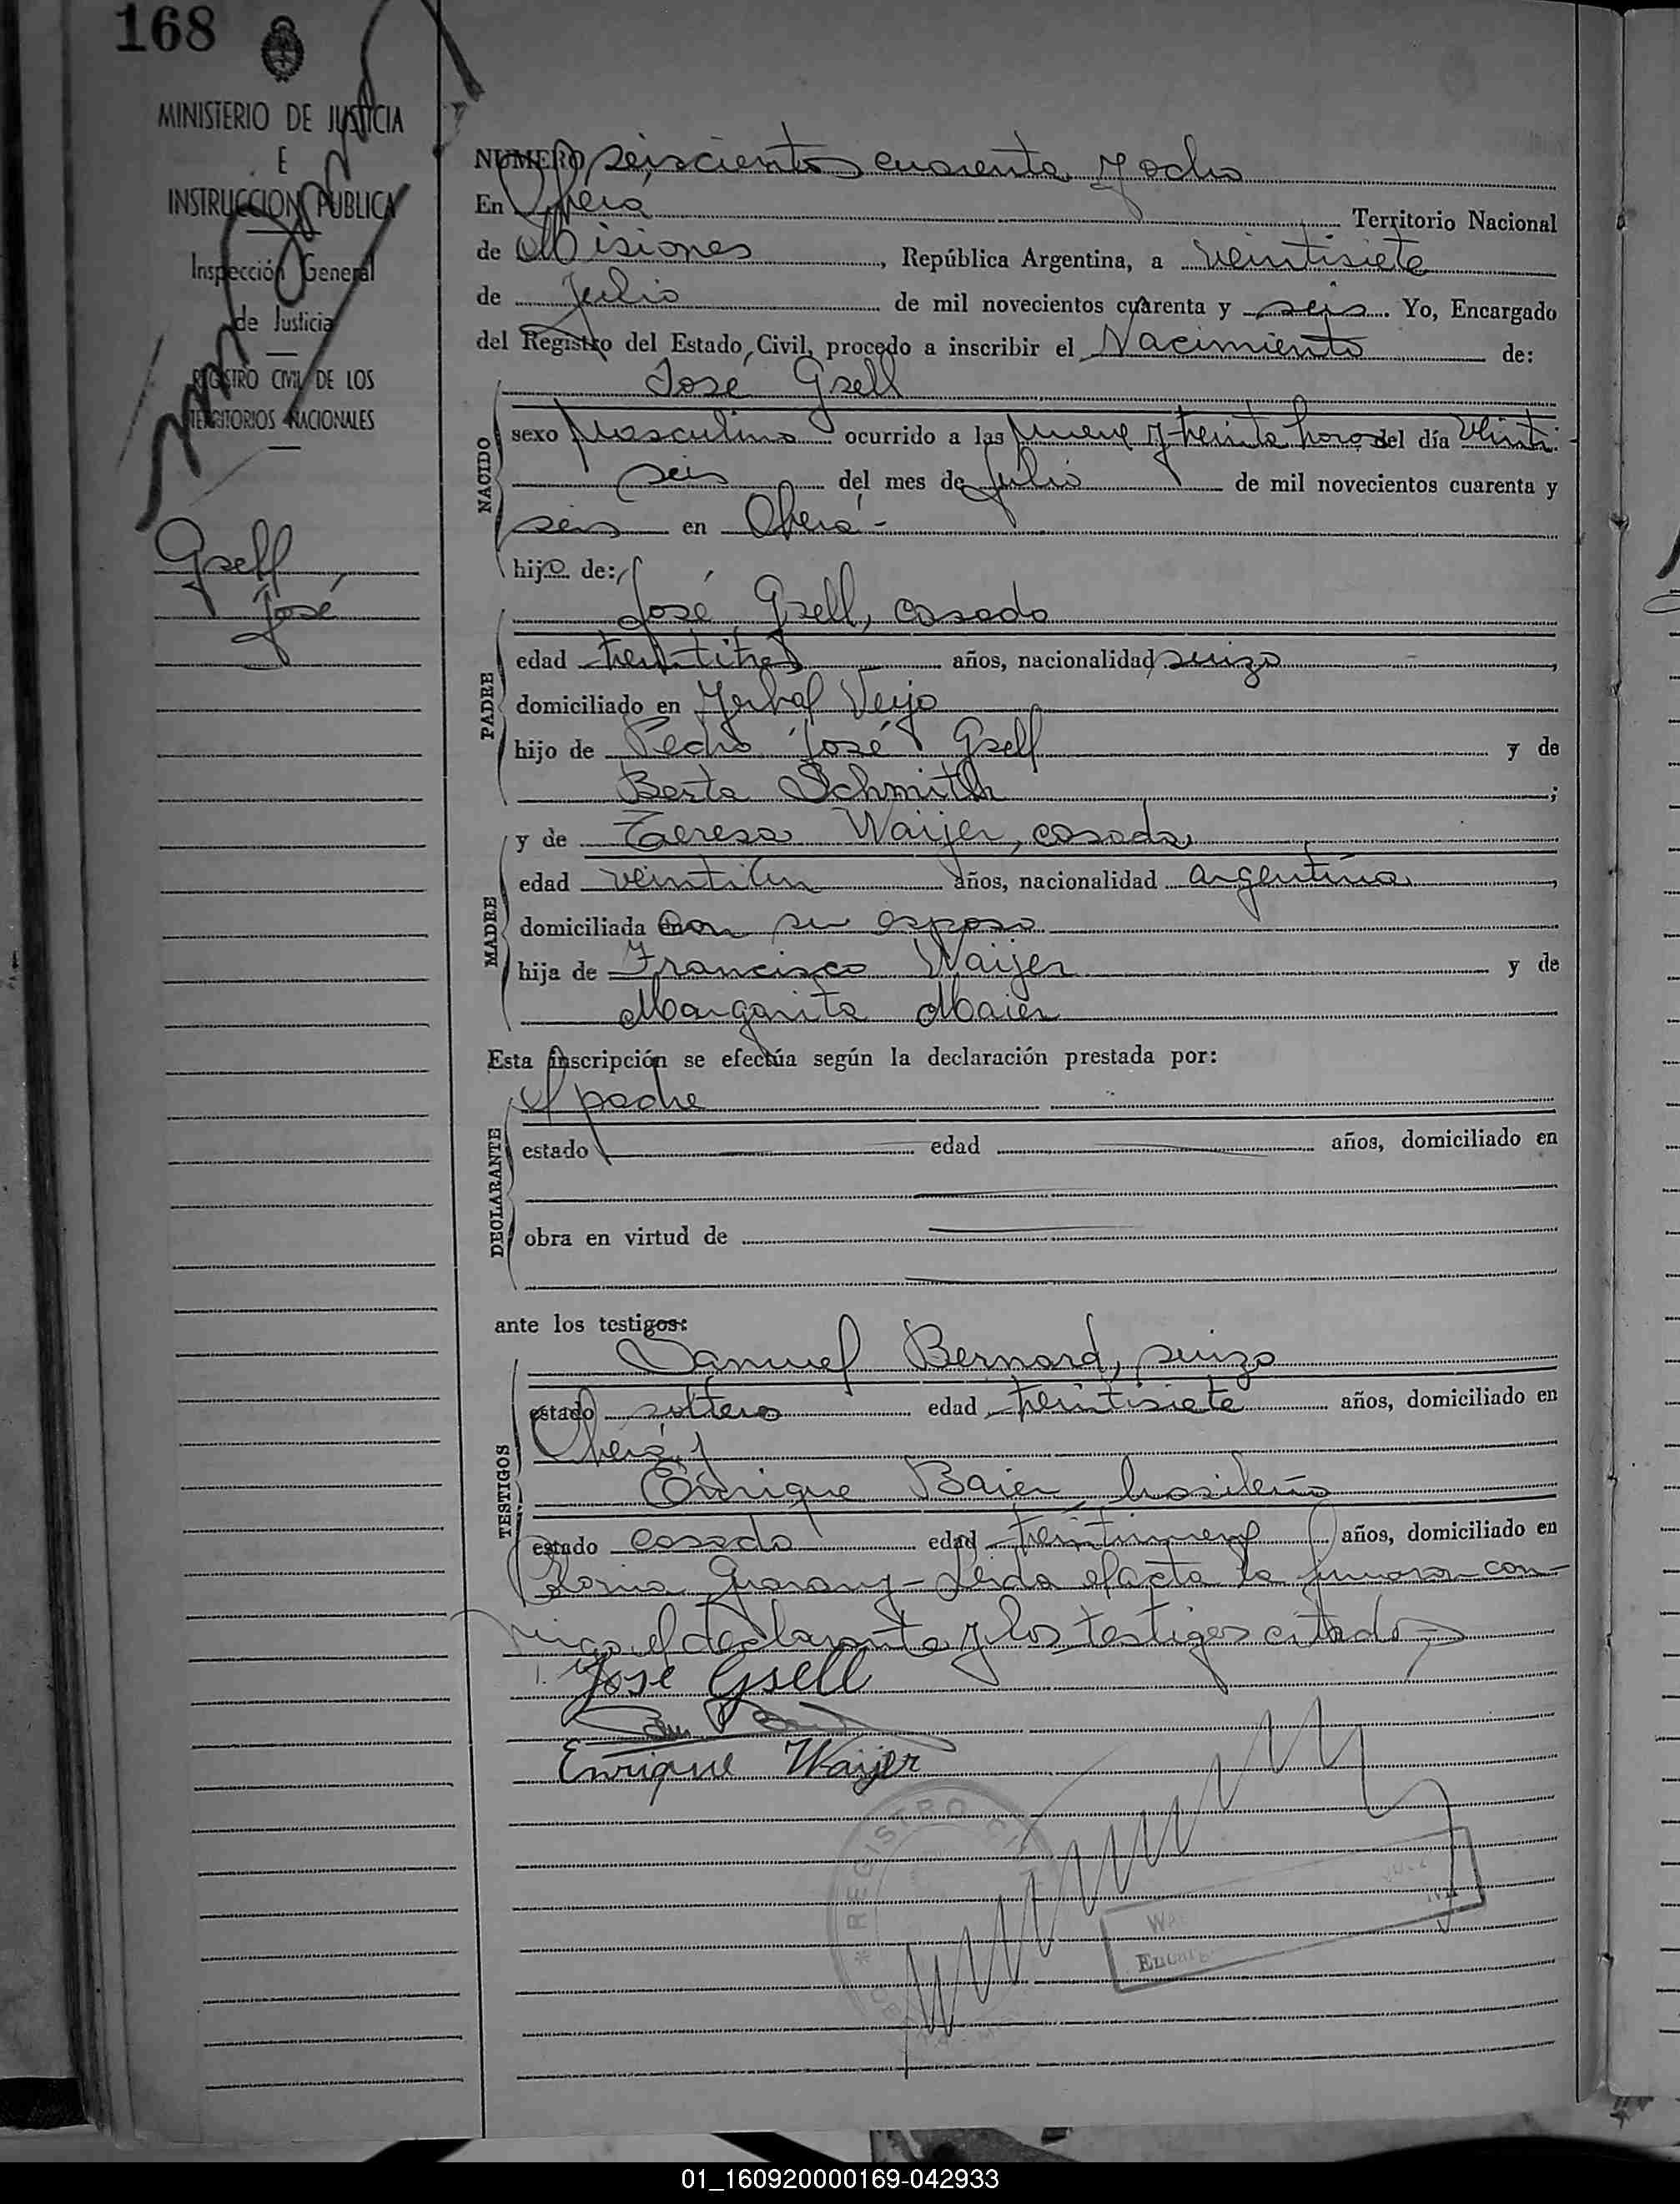 168
MINISTERIO DE JUSTICIA
E
INSTRUCCION PUBLICA
Inspección General
de Justicia
REGISTRO CIVIL DE LOS
TERRITORIOS NACIONALES
Gsell,
José
NUMERO seiscientos cuarenta y ocho
En Oberá Territorio Nacional
de Misiones, República Argentina, a veintisiete
de Julio de mil novecientos cuarenta y seis. Yo, Encargado
del Registro del Estado Civil, procedo a inscribir el Nacimiento de:
José Gsell
NACIDO
sexo Masculino ocurrido a las nueve y treinta horas del día veinti
seis del mes de Julio de mil novecientos cuarenta y
seis en Oberá-
hijo de:
PADRE
José Gsell, casado
edad treintitres años, nacionalidad suizo,
domiciliado en Yerbal Viejo
hijo de Pedro José Gsell y de
Berta Schmith;
MADRE
y de Teresa Waijer, casada
edad veintiun años, nacionalidad argentina,
domiciliada con su esposo
hija de Francisco Waijer y de
Margarita Maier
Esta inscripción se efectúa según la declaración prestada por:
DECLARANTE
el padre
estado edad años, domiciliado en
obra en virtud de
ante los testigos:
TESTIGOS
Samuel Bernard, suizo
estado soltero edad treintisiete años, domiciliado en
Oberá y
Enrique Baier, brasileño
estado casado edad treintinueve años, domiciliado en
Guarany-Leida el acta la firmaron con-
migo el declarante y los testigos citados
José Gsell
Enrique Waijer
REGISTRO CIVIL
Encar
01_160920000169-042933